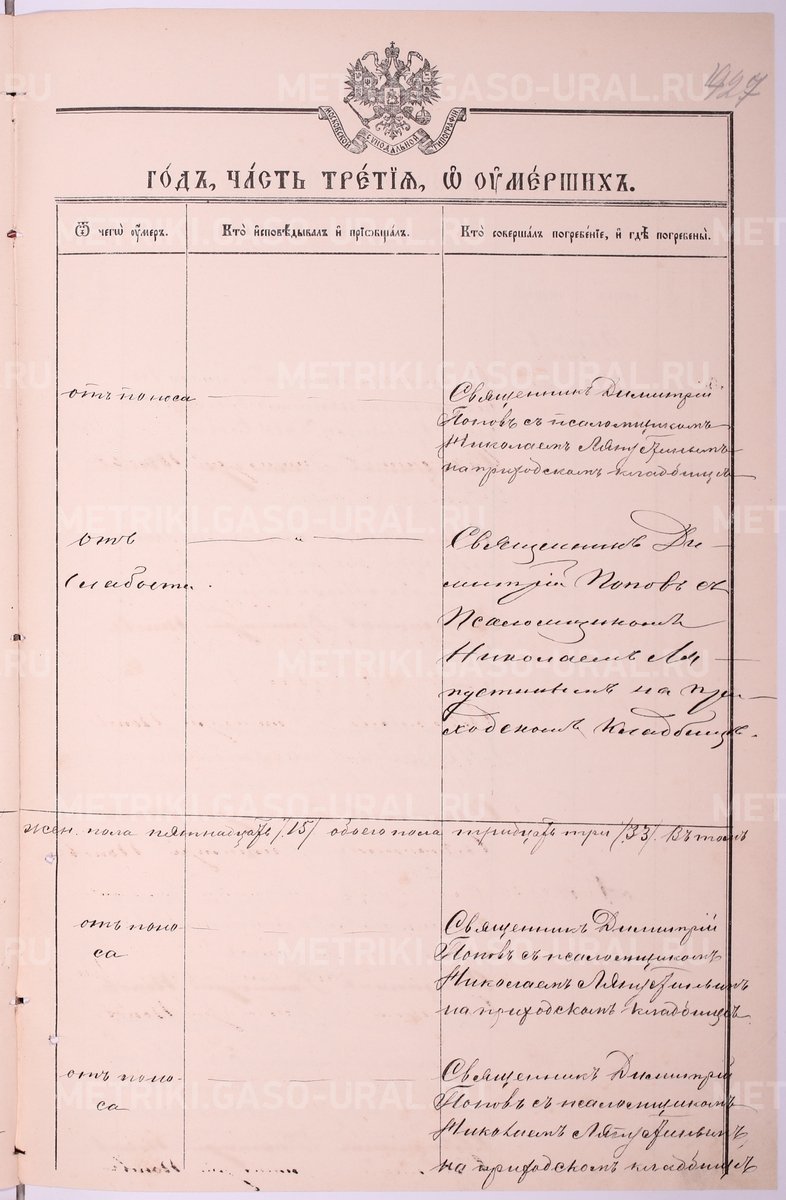 927
МОСКОВСКОЙ СѴНОДАЛЬНОЙ ТИПОГРАФІИ
ГО́ДЪ, ЧА́СТЬ ТРЕ́ТІѦ, Ѡ҆ ОУ҆МЕ́РШИХЪ.
Ѿ чегѡ̀ оу҆́меръ.
Кто̀ и҆сповѣ́дывалъ и҆ прїѡбща́лъ.
Кто̀ соверша́лъ погребе́нїе, и҆ гдѣ̀ погребены̀.
отъ поноса
Священникъ Димитрій
Поповъ съ псаломщикомъ
Николаемъ Ляпустинымъ
на приходскомъ кладбищѣ
отъ
слабости.
Священникъ Ди-
митрій Поповъ съ
Псаломщикомъ
Николаемъ Ля-
пустинымъ на при-
ходскомъ кладбищѣ.
жен. пола пятнадцать /15/ обоего пола тридцать три /33/. Въ томъ
отъ поно-
са
Священникъ Димитрій
Поповъ съ псаломщикомъ
Николаемъ Ляпустинымъ
на приходскомъ кладбищѣ
отъ поно-
са
Священникъ Димитрій
Поповъ съ псаломщикомъ
Николаемъ Ляпустинымъ
на приходскомъ кладбищѣ
METRIKI.GASO-URAL.RU